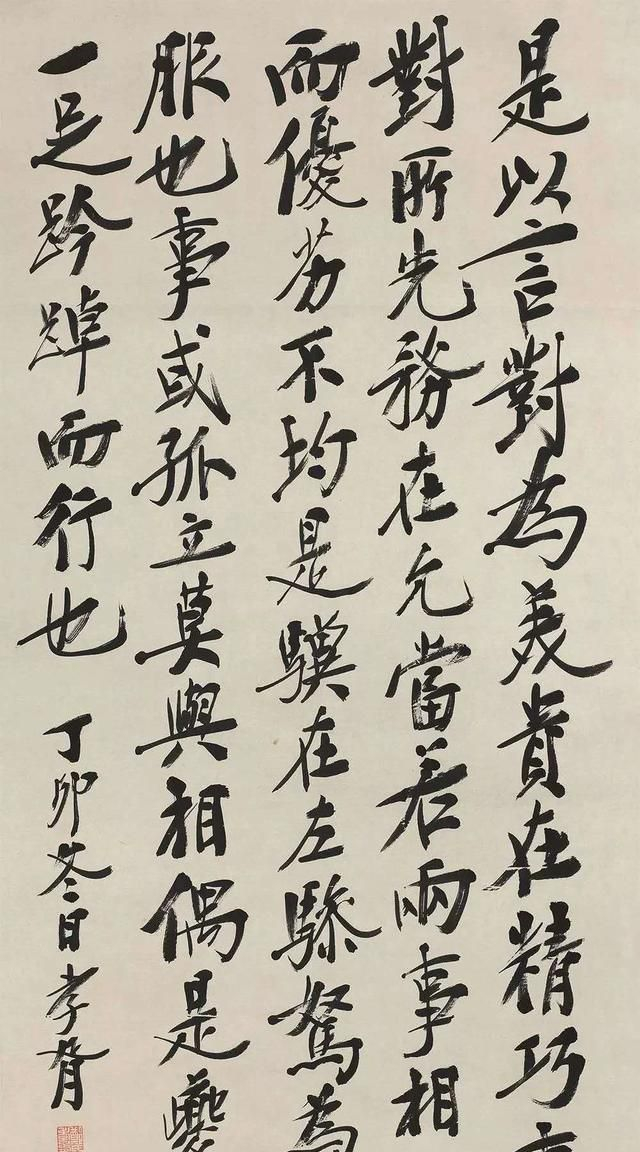 是以言對為美貴在精巧
對所先務在允當若兩事相
而優劣不均是驥在左驂駑為
服也事或孤立莫與相偶是夔
一足趻踔而行也 丁卯冬日孝胥